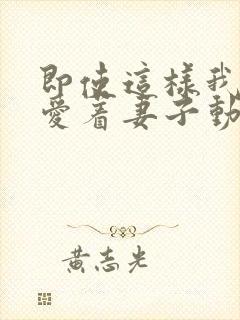 即使這樣我
愛着妻子動
黃志光